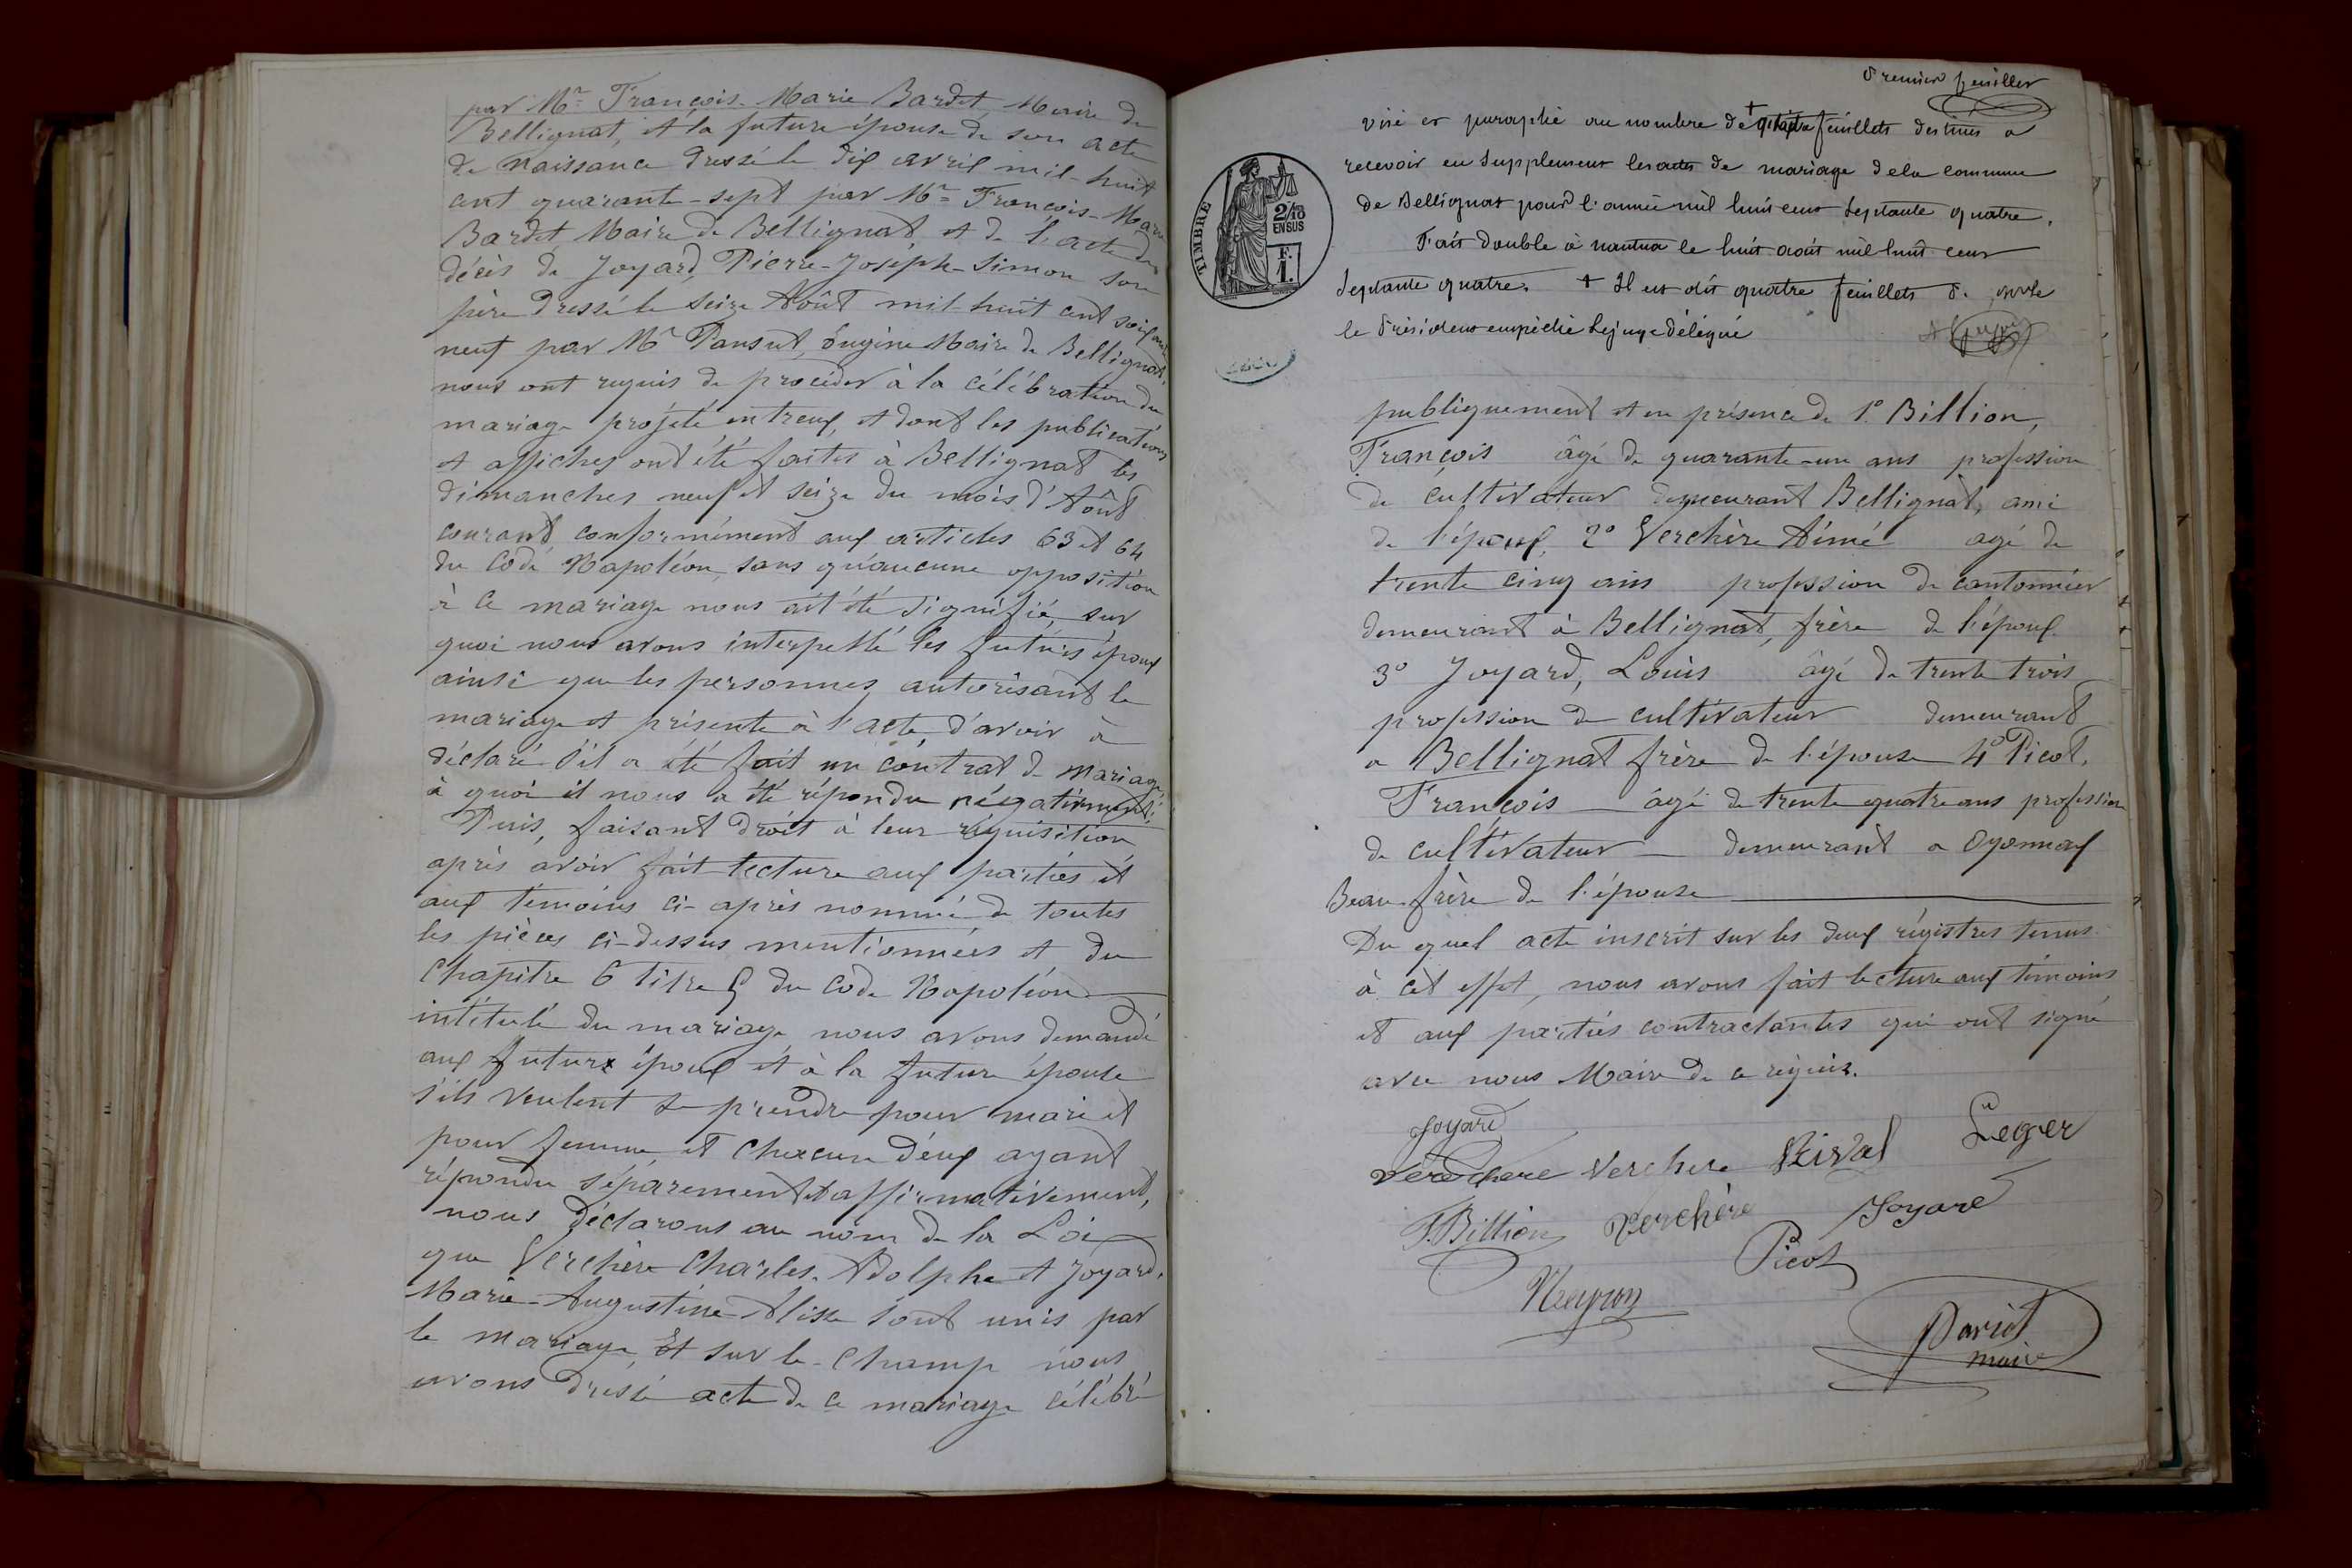 par Mr François-Marie Bardet Maire de
Bellignat, et la future épouse de son acte
de naissance dressé le dix avril mil-huit
cent quarante-sept par Mr François-Marie
Bardet Maire de Bellignat et de l'acte de
décès de Joyard, Pierre-Joseph-Simon son
père dressé le seize Août mil-huit cent soixante
neuf par Mr Pansut, Eugène Maire de Bellignat,
nous ont requis de procéder à la célébration du
mariage projeté entreux, et dont les publications
et affiches ont été faites à Bellignat les
dimanches neuf et seize du mois d'Août
courant conformément aux articles 63 et 64
du Code Napoléon, sans qu'aucune opposition
à ce mariage nous ait été signifié, sur
quoi nous avons interpellé les futurs époux
ainsi que les personnes autorisant le
mariage et présente à l'acte d'avoir à
déclaré s'il a été fait un contrat de mariage,
à quoi il nous a été répondu négativement.
Puis, faisant droit à leur réquisition
après avoir fait lecture aux parties et
aux témoins ci-après nommé de toutes
les pièces ci-dessus mentionnées et du
Chapitre 6 titre 5 du Code Napoléon
intitulé du mariage nous avons demandé
aux futurs époux et à la future épouse
s'ils veulent se prendre pour mari et
pour femme et chacun d'eux ayant
répondu séparement et affirmativement,
nous déclarons au nom de la Loi
que Verchère Charles-Adolphe et Joyard,
Marie-Augustine-Alisse sont unis par
le mariage, Et sur le-champ nous
avons dressé acte de ce mariage célébré
Premier feuillet
visé et paraphé au nombre de + feuillets destinés a
recevoir en supplement les actes de mariage dela commune
de Bellignat pour l'année mil huit cent septante quatre.
Fait double à nantua le huit août mil huit cent
septante quatre. + Il est dit quatre feuillets
le Président empêché le juge délégué
TIMBRE
2/10
EN SUS
F.
1.
publiquement et en présence de 1° Billion,
François âgé de quarante-un ans profession
de cultivateur demeurant Bellignat, ami
de l'époux, 2° Verchère Aimé agé de
trente cinq ans profession de cantonnier
demeurant à Bellignat, frère de l'époux
3° Joyard, Louis âgé de trente trois
profession de cultivateur demeurant
a Bellignat frère de l'épouse 4° Picot,
François âgé de trente quatre ans profession
de cultivateur demeurant a Oyonnax
Beau-frère de l'épouse
Du quel acte inscrit sur les deux régistres tenus
à cet effet, nous avons fait lecture aux témoins
et aux parties contractantes qui ont signé
avec nous Maire de ce réquis.
Joyard
Verchere Verchere Leger
F. Billion Verchère Joyard
Picot
Neyron
Dariet
maire